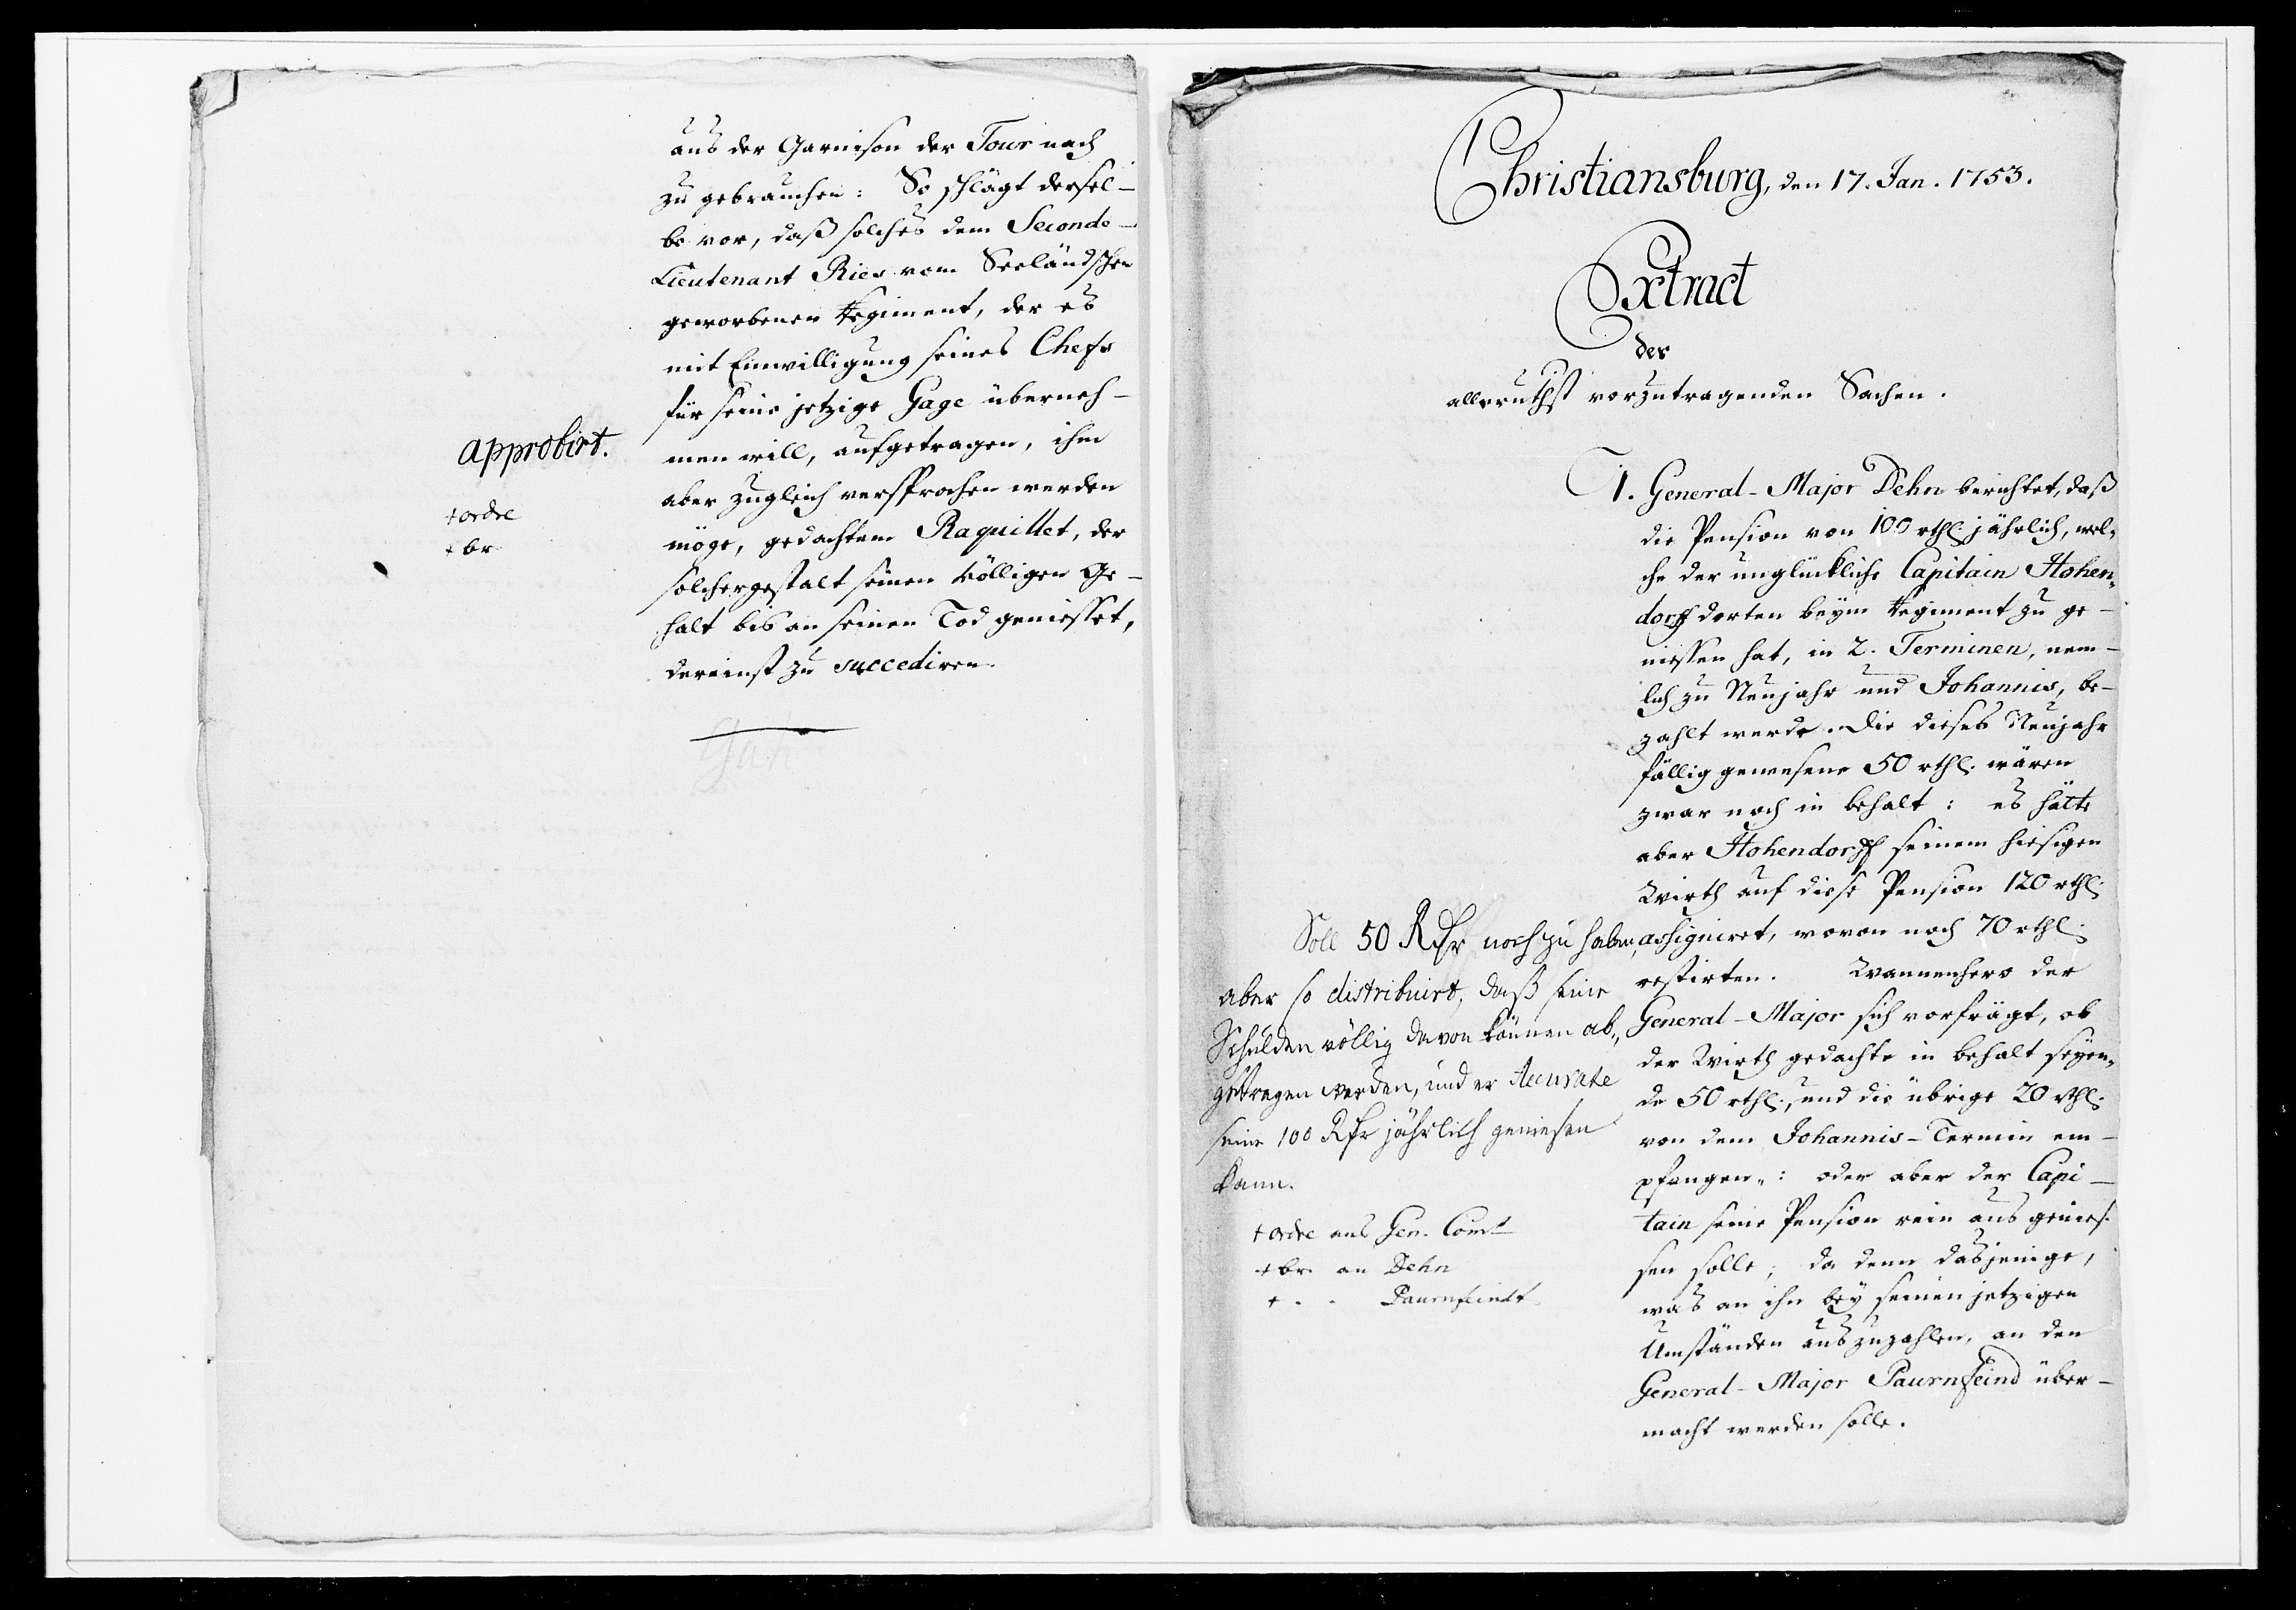 aus der Garnison der Tour nach
zu gebrauchen: So schlägt dersel-
be vor, daß solches dem Seconde-
Lieutenant Ries vom Seeländschen
geworbenen Regiment, der es
mit Einwilligung seines Chefs
für seine jetzige Gage überneh-
men will, aufgetragen, ihm
aber zugleich versprochen werden
möge, gedachtem Raquillet, der
solchergestalt seinen völligen Ge-
halt bis an seinen Tod geniesset,
dereinst zu succediren.
approbirt.
+ ordre
+ br
Christiansburg, den 17. Jan. 1753.
Extract
der
allerunthst vorzutragenden Sachen.
1. General-Major Dehn berichtet, daß
die Pension von 100 rthl. jährlich, wel-
che der unglückliche Capitain Hohen-
dorff dorten beym Regiment zu ge-
niessen hat, in 2. Terminen, nem-
lich zu Neujahr und Johannis, be-
zahlt werde. Die dieses Neujahr
fällig gewesene 50 rthl. wären
zwar noch in behalt: es hätte
aber Hohendorff seinem hiesigen
Wirth auf diese Pension 120 rthl.
assigniret, wovon noch 70 rthl.
restirten. Wannenhero der
General-Major sich vorfrägt, ob
der Wirth gedachte in behalt seyen-
de 50 rthl., und die übrige 20 rthl.
von dem Johannis-Termin em-
pfangen: oder aber der Capi-
tain seine Pension rein aus genies-
sen solle; da denn dasjenige,
was an ihn bey seinen jetzigen
Umständen auszuzahlen, an den
General-Major Paurnfeind über-
macht werden solle.
Soll 50 Rthr noch zu haben,
aber so distribuirt, daß seine
Schulden völlig davon können ab-
getragen werden, und er Accurate
seine 100 Rthr jährlich geniesen
kann.
+ ordre ans Gen. Comt
+ br. an Dehn
+ . . Paurnfeindt